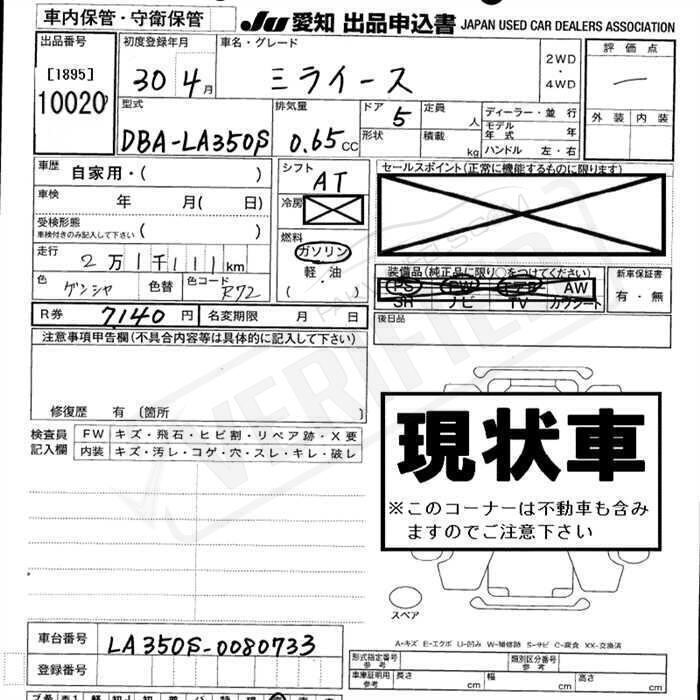 車内保管・守衛保管
JU 愛知 出品申込書 JAPAN USED CAR DEALERS ASSOCIATION
出品番号
[1895]
10020
初度登録年月
30 4月
車名・グレード
ミライース
2WD
・
4WD
評価点
外装 内装
型式
DBA-LA350S
排気量
0.65 CC
ドア 5
形状
定員 人
積載 kg
ディーラー・並行
モデル年式 年
ハンドル 左・右
車歴 自家用・( )
車検 年 月( 日)
受検形態
車検付きのみ記入して下さい ( )
走行 2万1千111km
色 ゲンシャ 色替 色コード R72
シフト AT
冷房
燃料
ガソリン
軽・油
( )
セールスポイント(正常に機能するものに限ります)
装備品(純正品に限り○をつけてください)
PS PW エアB AW
SR ナビ TV カワシート
新車保証書
有・無
後日品
R券 7140円 名変期限 月 日
注意事項申告欄(不具合内容等は具体的に記入して下さい)
修復歴 有〔箇所
検査員記入欄
FW キズ・飛石・ヒビ割・リペア跡・X要
内装 キズ・汚レ・コゲ・穴・スレ・キレ・破レ
現状車
※このコーナーは不動車も含み
ますのでご注意下さい
スペア
A-キズ E-エクボ U-凹み W-補修跡 S-サビ C-腐食 XX-交換済
車台番号 LA350S-0080733
登録番号
形式指定番号
参考
類別区分番号
参考
車庫証明用
参考
長さ cm
幅 cm
高さ cm
VERIFIED